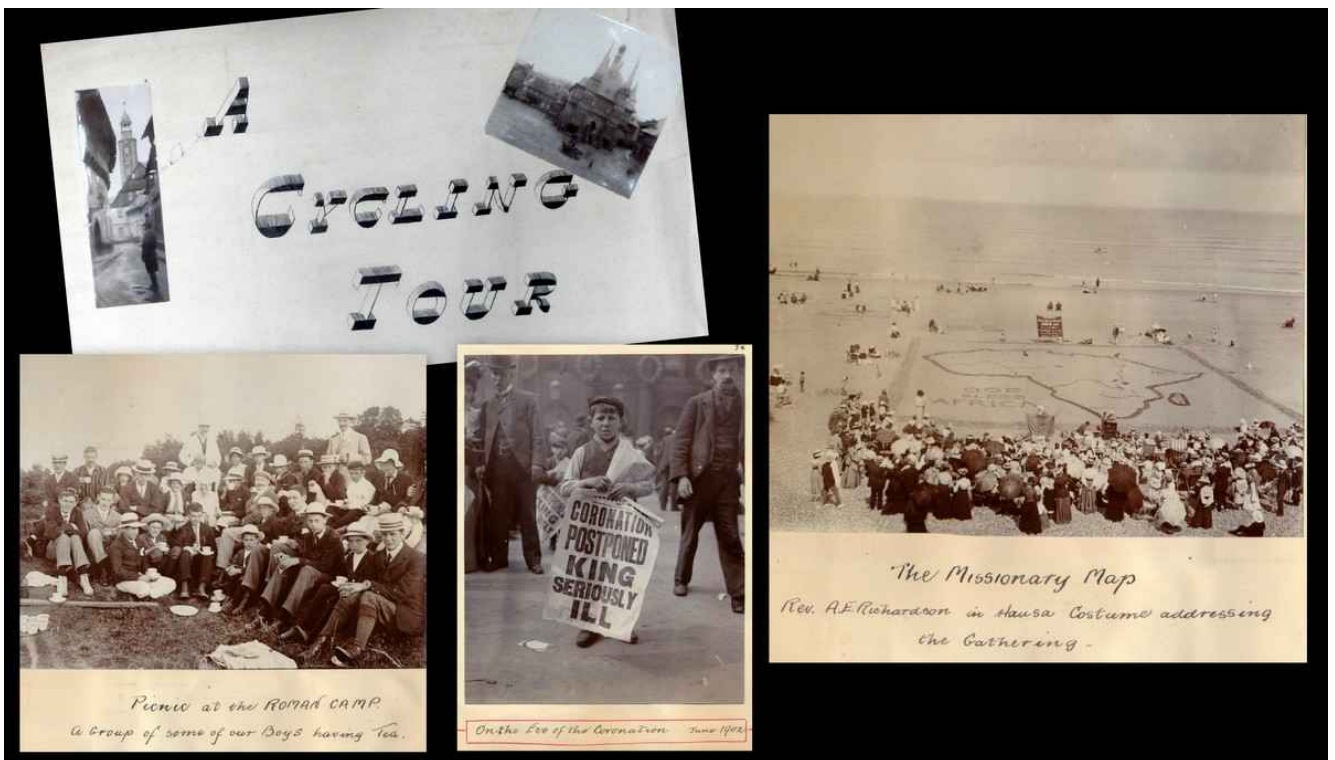 A
CYCLING
TOUR
Picnic at the ROMAN CAMP.
A Group of some of our Boys having Tea.
CORONATION
POSTPONED
KING
SERIOUSLY
ILL
On the Eve of the Coronation June 1902
GOD
BLESS
AFRICA
The Missionary Map
Rev. A.E. Richardson in Hausa Costume addressing
the Gathering -